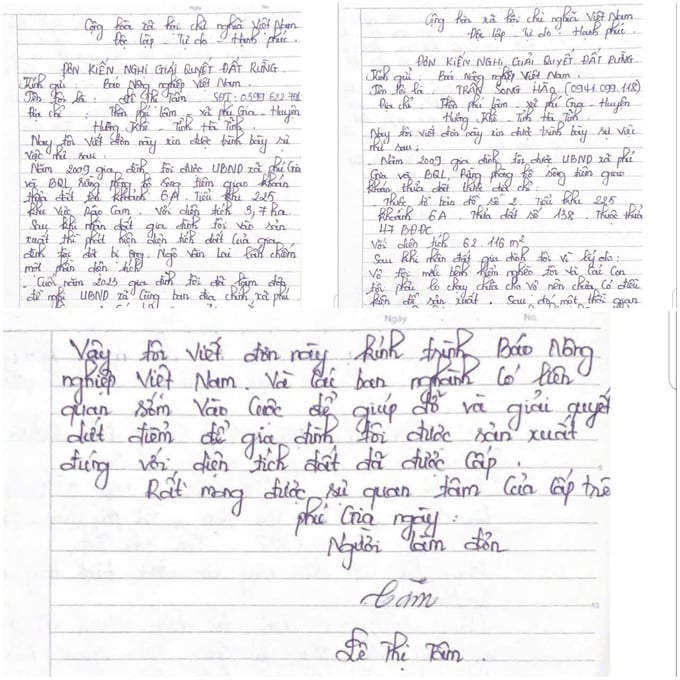 Cộng hòa xã hội chủ nghĩa Việt Nam
Độc lập - Tự do - Hạnh phúc.
ĐƠN KIẾN NGHỊ GIẢI QUYẾT ĐẤT RỪNG
Kính gửi : Báo Nông nghiệp Việt Nam.
Tên tôi là : Lê Thị Tâm SĐT: 0399.622
Địa chỉ : Thôn phú lâm - xã phú Gia - Huyện
Hương Khê - Tỉnh Hà Tĩnh.
Nay tôi viết đơn này xin được trình bày sự
việc như sau:
Năm 2009 gia đình tôi được UBND xã phú Gia
và BQL Rừng phòng hộ Sông tiêm giao khoán
thửa đất tại khoảnh 6A. Tiểu khu 225
khu vực Cam. Với diện tích 3,7 ha.
Sau khi nhận đất gia đình tôi vào sản
xuất thì phát hiện diện tích đất của gia
đình tôi đã bị ông. Ngô Văn Lai lấn chiếm
một phần diện tích
- Cuối năm 2023 gia đình tôi đã làm đơn
đề nghị UBND xã cùng ban địa chính xã phú
Cộng hòa xã hội chủ nghĩa Việt Nam
Độc lập - Tự do - Hạnh phúc.
ĐƠN KIẾN NGHỊ GIẢI QUYẾT ĐẤT RỪNG.
Kính gửi : Báo Nông nghiệp Việt Nam.
Tên tôi là : TRẦN SONG HÀO (0941.099.118)
Địa chỉ : Thôn phú lâm - xã phú Gia - Huyện
Hương Khê - Tỉnh Hà Tĩnh.
Nay tôi viết đơn này xin được trình bày sự việc
như sau:
- Năm 2009 gia đình tôi được UBND xã phú
Gia và BQL. Rừng phòng hộ sông tiêm giao
khoán thửa đất thuộc đất chỉ:
- Thuộc tờ bản đồ số 2. Tiểu khu 225
Khoảnh 6A. Thửa đất số 138. Thuộc thửa
47 BĐĐC
Với diện tích 62.116 m²
Sau khi nhận đất gia đình tôi vì lý do:
Vợ tôi mắc bệnh hiểm nghèo tôi và các con
tôi phải lo chạy chữa cho vợ nên chưa có điều
kiện để sản xuất. Sau đó một thời gian
Ngày No.
Vậy tôi viết đơn này kính trình Báo Nông
nghiệp Việt Nam và các ban nghành có liên
quan sớm vào cuộc để giúp đỡ và giải quyết
dứt điểm để gia đình tôi được sản xuất
đúng với diện tích đất đã được cấp.
Rất mong được sự quan tâm của cấp trê
phú Gia ngày:
Người làm đơn
Tâm
Lê Thị Tâm.